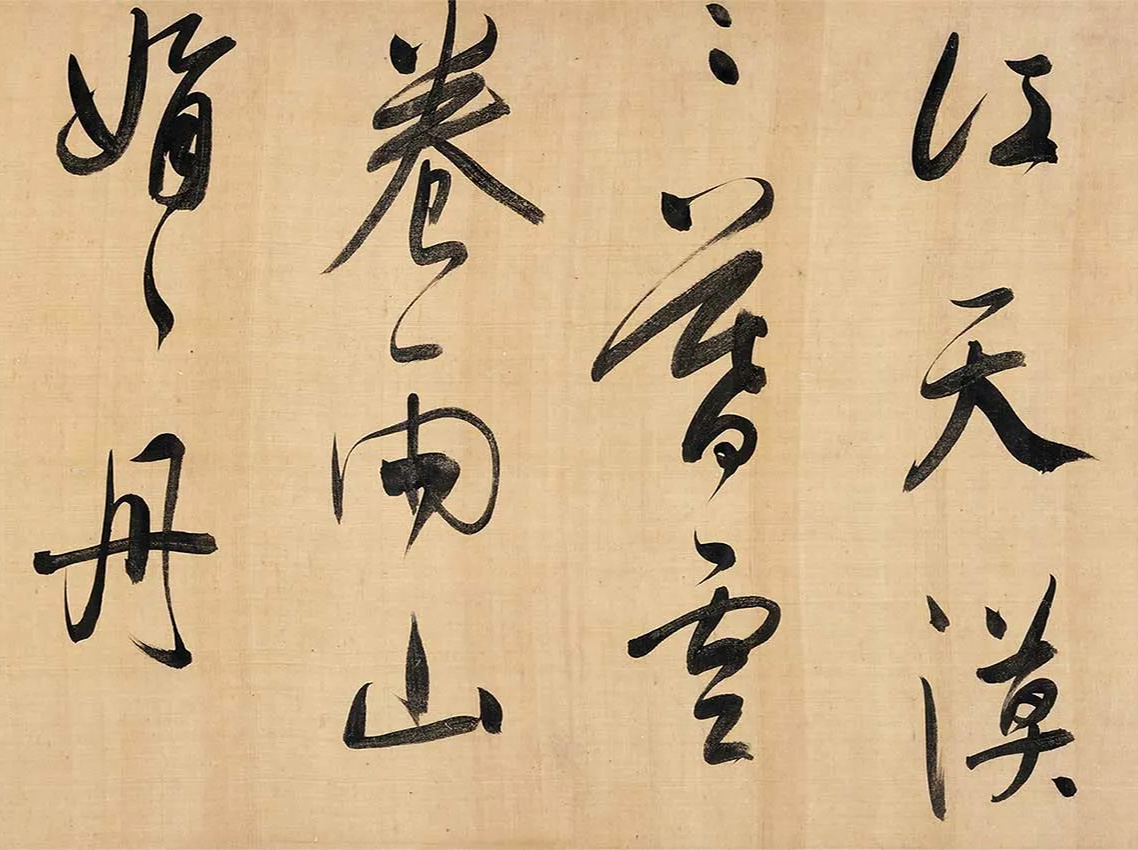 江天漠
漠暮雲
卷雨山
娟娟丹